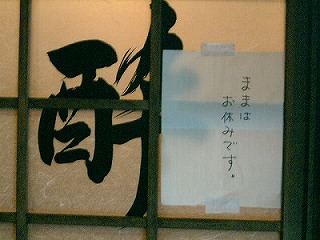 酔
ままは
お休みです。